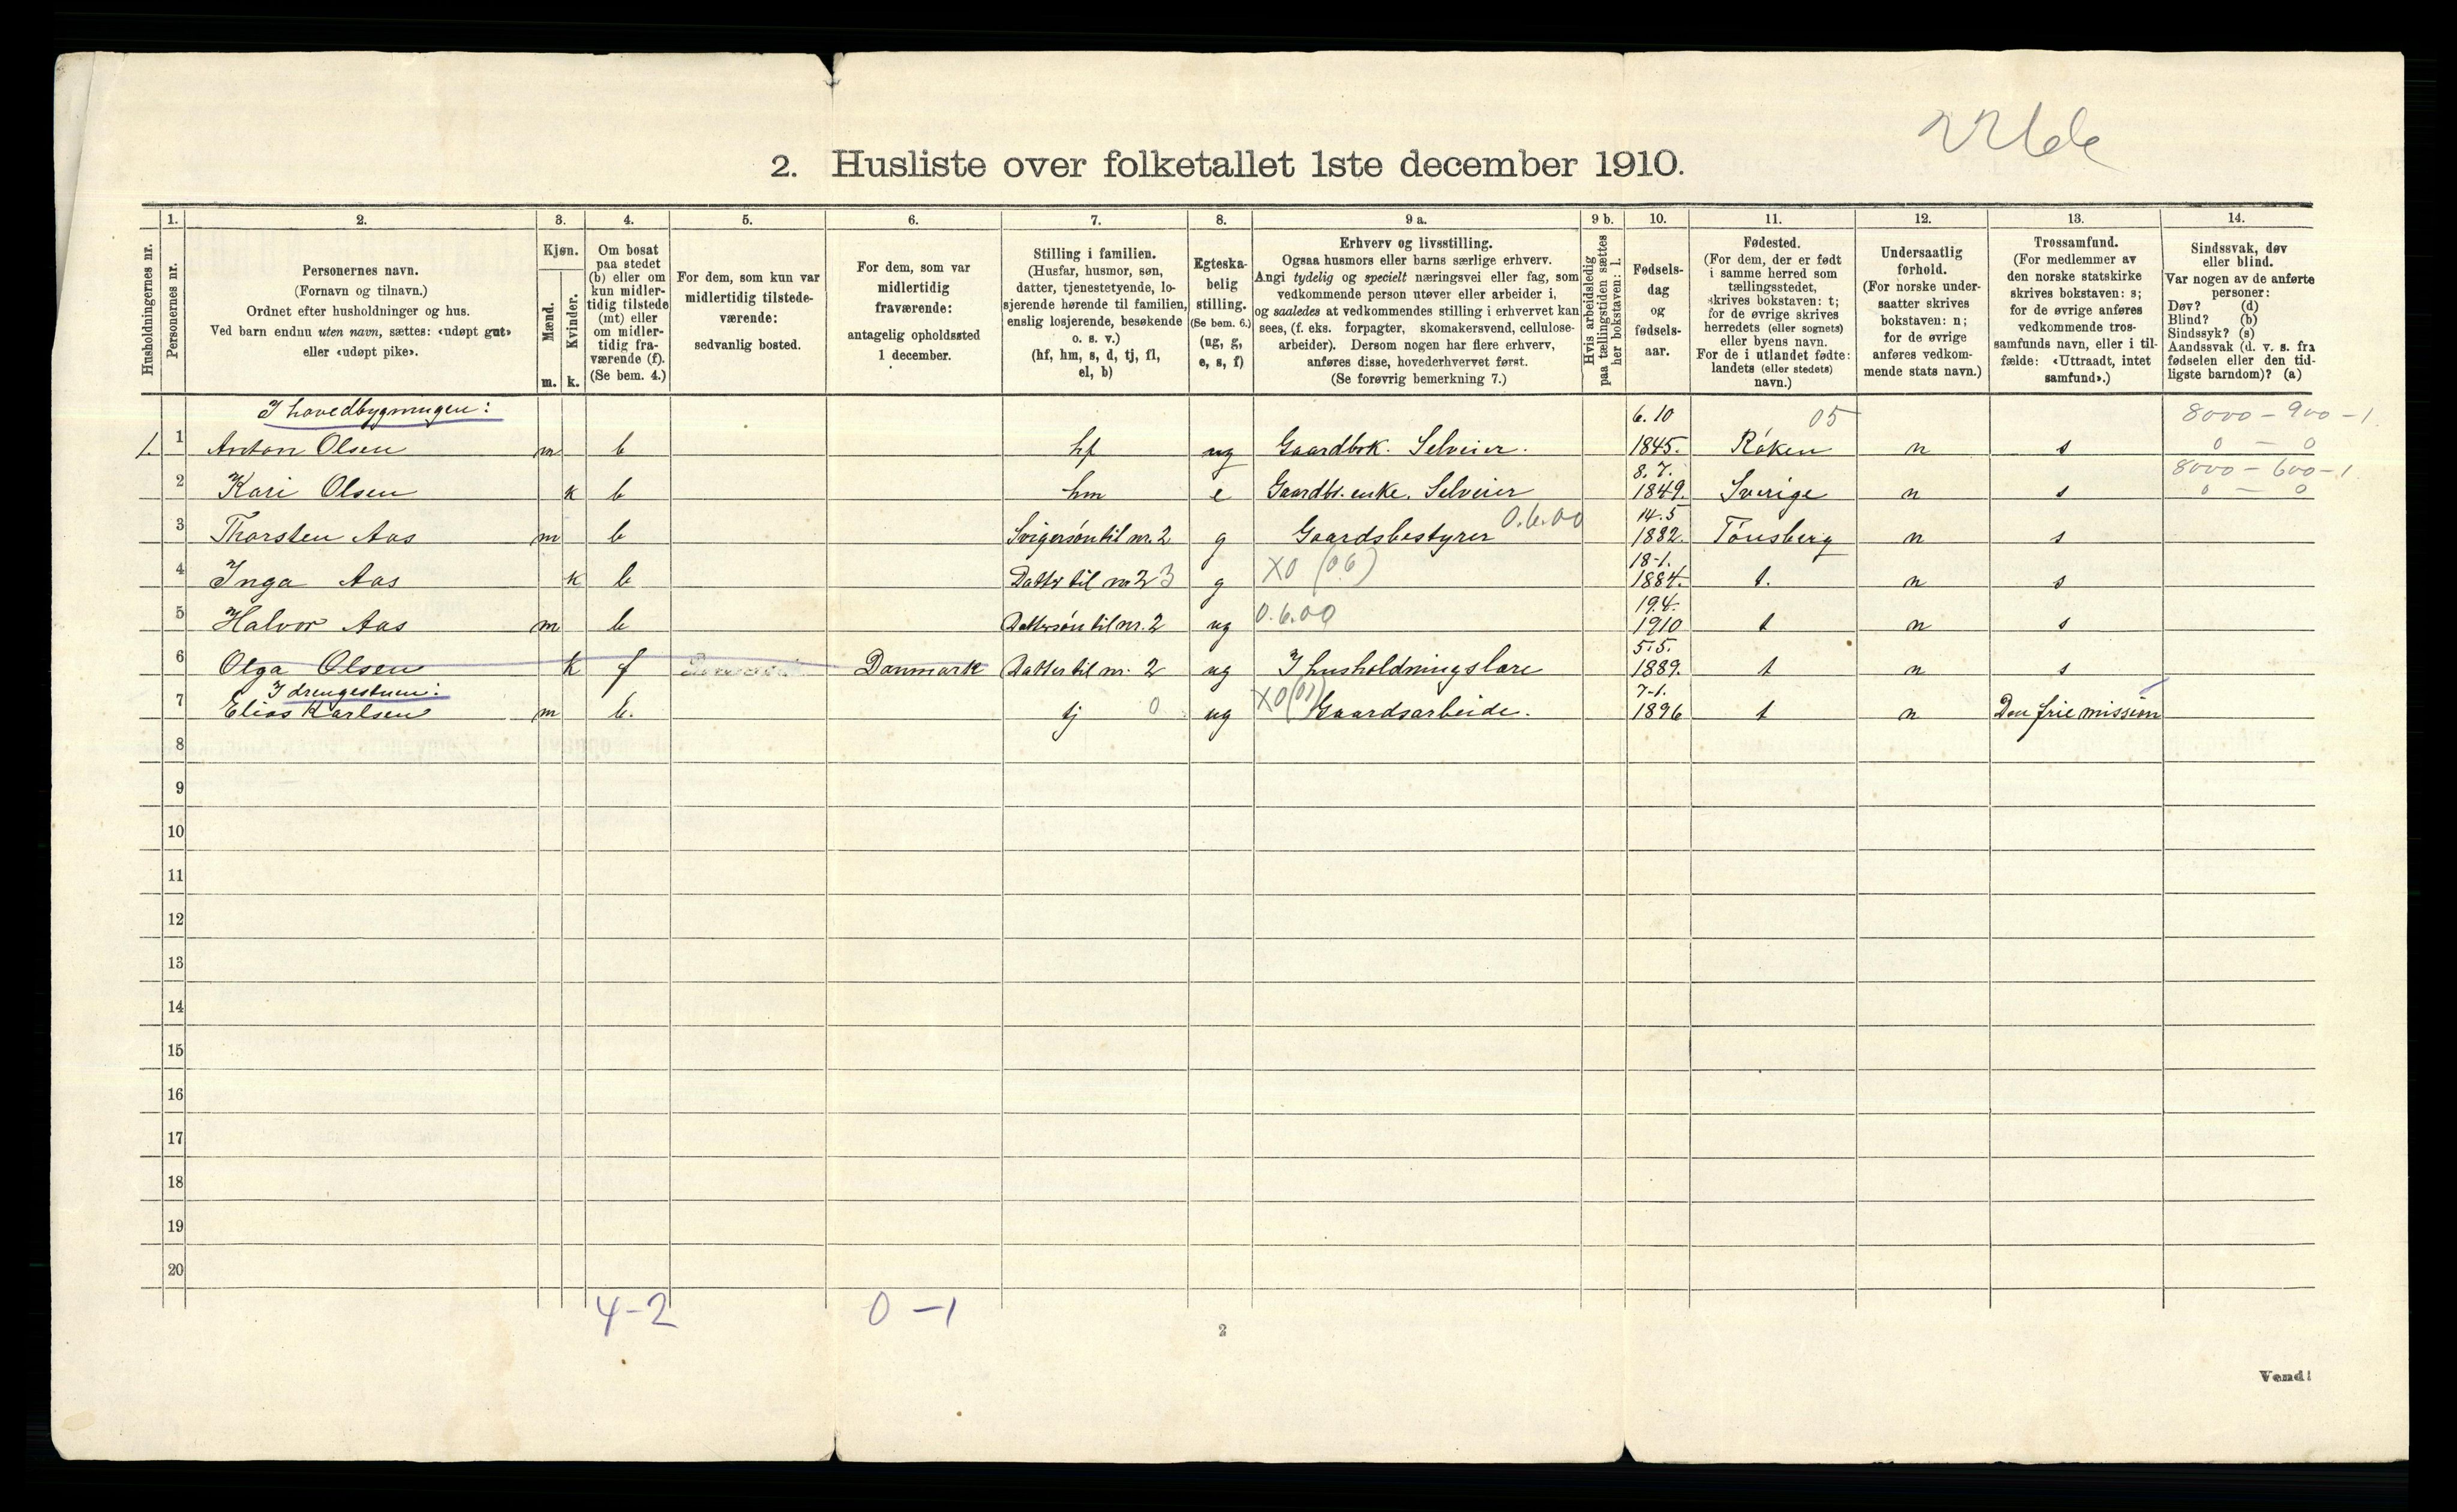 2. Husliste over folketallet 1ste december 1910.
1. 2. 3. 4. 5. 6. 7. 8. 9 a. 9 b. 10. 11. 12. 13. 14.
Husholdningernes nr.
Personernes nr.
Personernes navn.
(Fornavn og tilnavn.)
Ordnet efter husholdninger og hus.
Ved barn endnu uten navn, sættes: «udøpt gut»
eller «udøpt pike».
Kjøn.
Mænd.
Kvinder.
m. k.
Om bosat
paa stedet
(b) eller om
kun midler-
tidig tilstede
(mt) eller
om midler-
tidig fra-
værende (f).
(Se bem. 4.)
For dem, som kun var
midlertidig tilstede-
værende:
sedvanlig bosted.
For dem, som var
midlertidig
fraværende:
antagelig opholdssted
1 december.
Stilling i familien.
(Husfar, husmor, søn,
datter, tjenestetyende, lo-
sjerende hørende til familien,
enslig losjerende, besøkende
o. s. v.)
(hf, hm, s, d, tj, fl,
el, b)
Egteska-
belig
stilling.
(Se bem. 6.)
(ug, g,
e, s, f)
Erhverv og livsstilling.
Ogsaa husmors eller barns særlige erhverv.
Angi tydelig og specielt næringsvei eller fag, som
vedkommende person utøver eller arbeider i,
og saaledes at vedkommendes stilling i erhvervet kan
sees, (f. eks. forpagter, skomakersvend, cellulose-
arbeider). Dersom nogen har flere erhverv,
anføres disse, hovederhvervet først.
(Se forøvrig bemerkning 7.)
Hvis arbeidsledig
paa tællingstiden sættes
her bokstaven: l.
Fødsels-
dag
og
fødsels-
aar.
Fødested.
(For dem, der er født
i samme herred som
tællingsstedet,
skrives bokstaven: t;
for de øvrige skrives
herredets (eller sognets)
eller byens navn.
For de i utlandet fødte:
landets (eller stedets)
navn.)
Undersaatlig
forhold.
(For norske under-
saatter skrives
bokstaven: n;
for de øvrige
anføres vedkom-
mende stats navn.)
Trossamfund.
(For medlemmer av
den norske statskirke
skrives bokstaven: s;
for de øvrige anføres
vedkommende tros-
samfunds navn, eller i til-
fælde: «Uttraadt, intet
samfund».)
Sindssvak, døv
eller blind.
Var nogen av de anførte
personer:
Døv? (d)
Blind? (b)
Sindssyk? (s)
Aandssvak (d. v. s. fra
fødselen eller den tid-
ligste barndom)? (a)
I hovedbygningen: 6.10 05 8000 - 900 - 1
1. 1 Anton Olsen m b hf ug Gaardbrk. Selveier. 1845. Røken n s 0 - 0
8.7. 8000 - 600 - 1
2 Kari Olsen k b hm e Gaardbr. enke. Selveier 1849. Sverige n s 0 - 0
0.6.00 14.5
3 Thorsten Aas m b Svigersøn til nr. 2 g Gaardsbestyrer 1882. Tønsberg n s
X0 (06) 18-1.
4 Inga Aas k b Datter til nr 2 3 g 1884. t. n s
0.6.00 19.4.
5 Halvor Aas m b Dattersøn til nr. 2 ug 1910 t n s
5.5.
6 Olga Olsen k f Danmark Datter til nr. 2 ug I husholdningslære 1889. t n s
I drengestuen: X0 (01) 7-1.
7 Elias Karlsen m b. tj 0 ug Gaardsarbeide. 1896 t n Den frie mission
8
9
10
11
12
13
14
15
16
17
18
19
20
4-2 0-1
2
Vend!